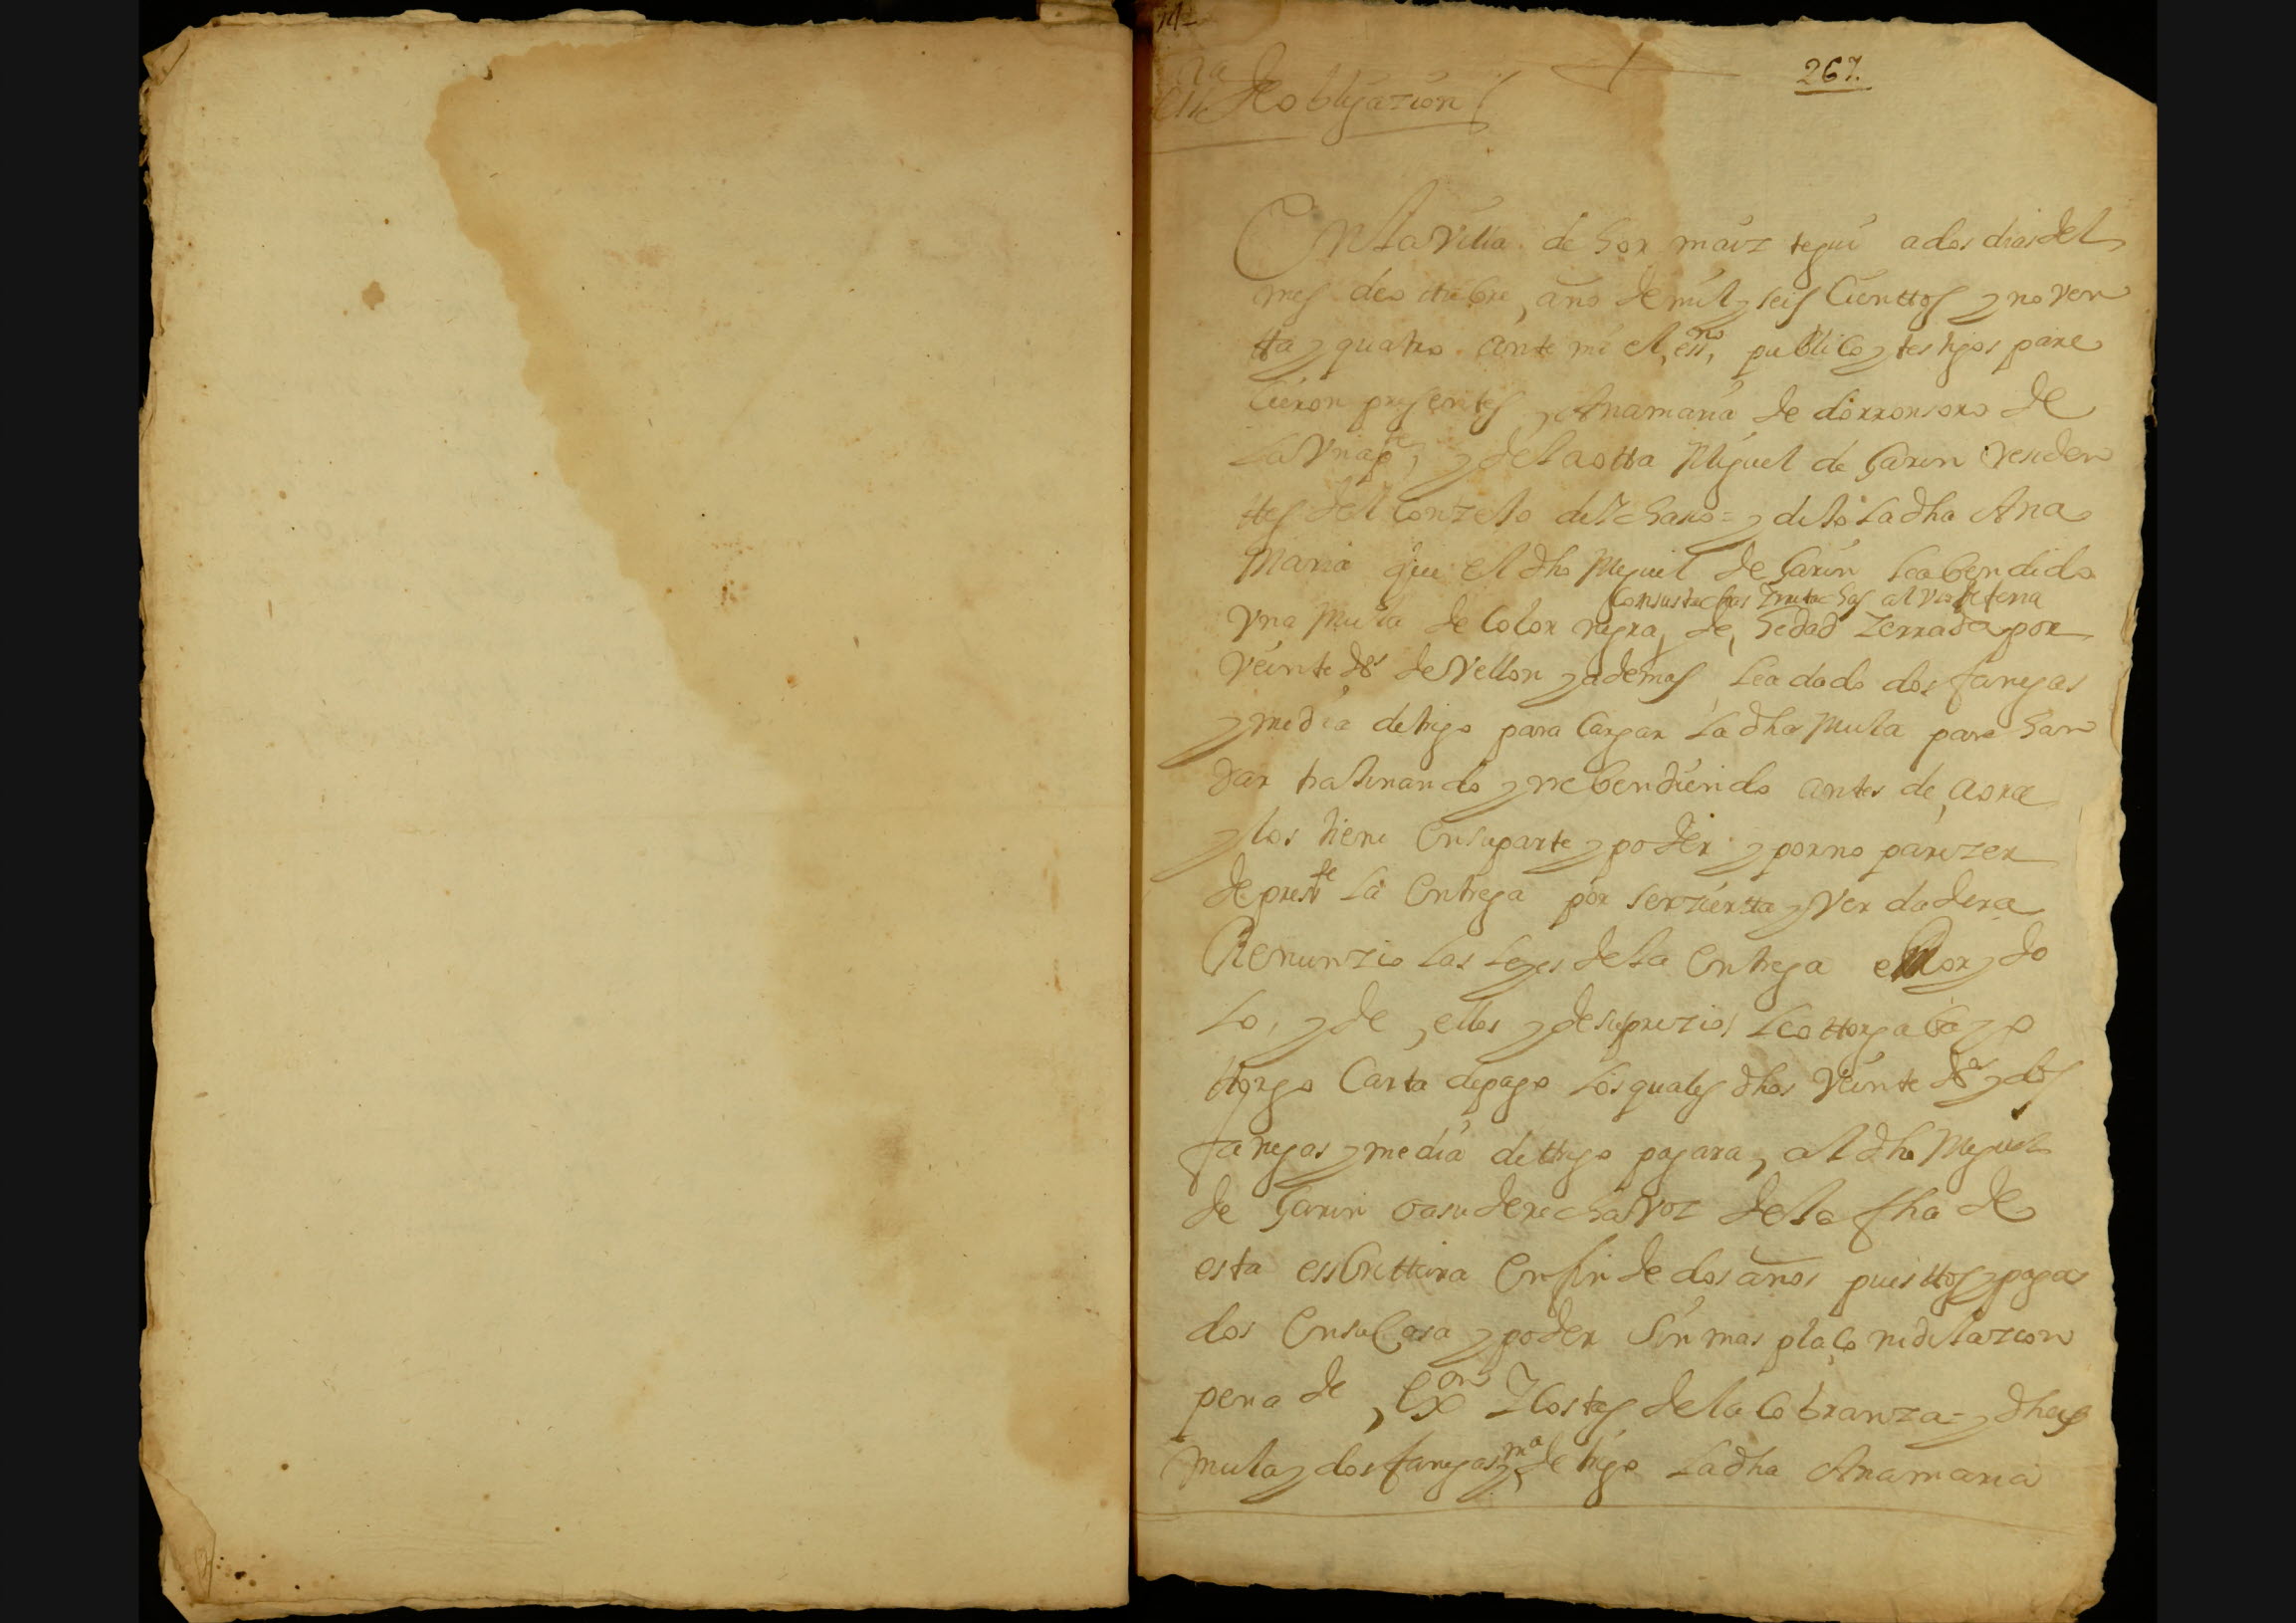 267.
de obligazion
En la Villa de hormaiztegui a dos dias del
mes de otubre, año de mil y seis Cienttos y noven
tta y quatro ante mi el, essno, publico y testigos pare
Cieron presentes, Anamaria de dorronsoro de
la Vna pte, y de la otta Miguel de Garin residen
ttes del Conzeto de Ychaso = y dilo la dha Ana
Maria que el dho Miguel de Garin lea bendido
Con sus tachas y mutachas al vso de feria
Vna Mula de Color negra, de, hedad Zerrada por
veinte ds de Vellon y ademas lea dado dos fanegas
y media de trigo para Cargar la dha Mula para han
dar tratinando y rrebendiendo antes de, aora
y los tiene en su parte y poder y por no parezer
de preste la entrega por ser zierta y Verdadera
Renunzio las leyes de la entrega error y do
lo, y de, ellos y de su prezios le ottorgaba y o
ttorgo Carta de pago los quales dhos Veinte ds y dos
fanegas y media de ttrigo pagara, al dho Miguel
de Garin o a su derecha voz de la fha de
esta esscrittura en fin de dos años puesttos y paga
dos en su Casa y poder sin mas plaço ni dilazion
pena de, exon y Costas de la Cobranza = y dha
mula y dos fanegas y ma de trigo la dha Anamaria